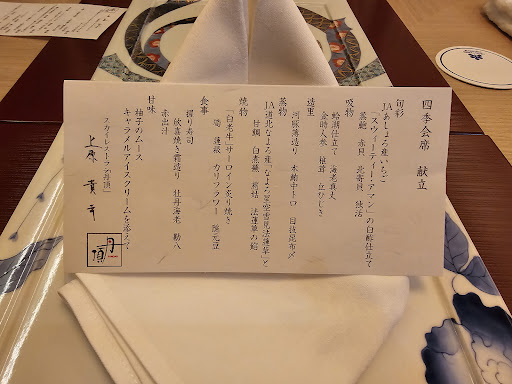 四季会席 献立
旬彩
JAあしょろ産いちご
「スウィーティーアマン」の白酢仕立て
蒸鮑 赤貝 北寄貝 独活
吸物
蛤潮仕立て 海老真丈
金時人参 椎茸 紅ひじき
造里
河豚薄造り 本鮪中トロ 目抜昆布〆
蒸物
JA道北なよろ産「なよろ星空雪見法蓮草」と
甘鯛 白煮蕪 法蓮草の餡
焼物
「白老牛」サーロイン炙り焼き
筍 蓮根 カリフラワー 隠元豆
食事
握り寿司
炊喜焼き霜造り 牡丹海老 勘八
赤出汁
甘味
柚子のムース
キャラメルアイスクリームを添えて
スカイレストラン「丹頂」
上原
丹頂